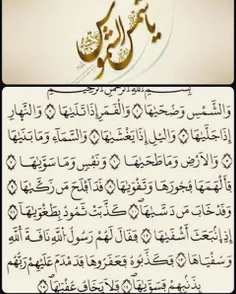 یا شمس الشموس
بِسْمِ اللَّهِ الرَّحْمَٰنِ الرَّحِيمِ
وَالشَّمْسِ وَضُحَىٰهَا ۝١ وَالْقَمَرِ إِذَا تَلَىٰهَا ۝٢ وَالنَّهَارِ
إِذَا جَلَّىٰهَا ۝٣ وَالَّيْلِ إِذَا يَغْشَىٰهَا ۝٤ وَالسَّمَاءِ وَمَا بَنَىٰهَا
۝٥ وَالْأَرْضِ وَمَا طَحَىٰهَا ۝٦ وَنَفْسٍ وَمَا سَوَّىٰهَا ۝٧
فَأَلْهَمَهَا فُجُورَهَا وَتَقْوَىٰهَا ۝٨ قَدْ أَفْلَحَ مَن زَكَّىٰهَا ۝٩
وَقَدْ خَابَ مَن دَسَّىٰهَا ۝١٠ كَذَّبَتْ ثَمُودُ بِطَغْوَىٰهَا ۝١١
إِذِ انبَعَثَ أَشْقَىٰهَا ۝١٢ فَقَالَ لَهُمْ رَسُولُ اللَّهِ نَاقَةَ اللَّهِ
وَسُقْيَىٰهَا ۝١٣ فَكَذَّبُوهُ فَعَقَرُوهَا فَدَمْدَمَ عَلَيْهِمْ رَبُّهُم
بِذَنبِهِمْ فَسَوَّىٰهَا ۝١٤ فَلَا يَخَافُ عُقْبَىٰهَا ۝١٥